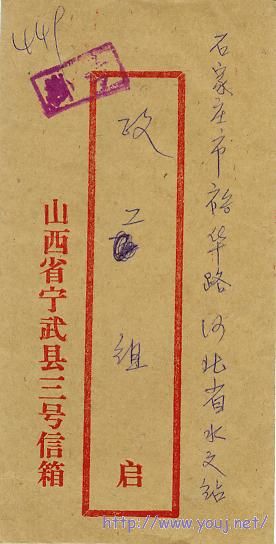 441
石家庄市裕华路河北省水文站
政工组
启
山西省宁武县三号信箱
http://www.youj.net/